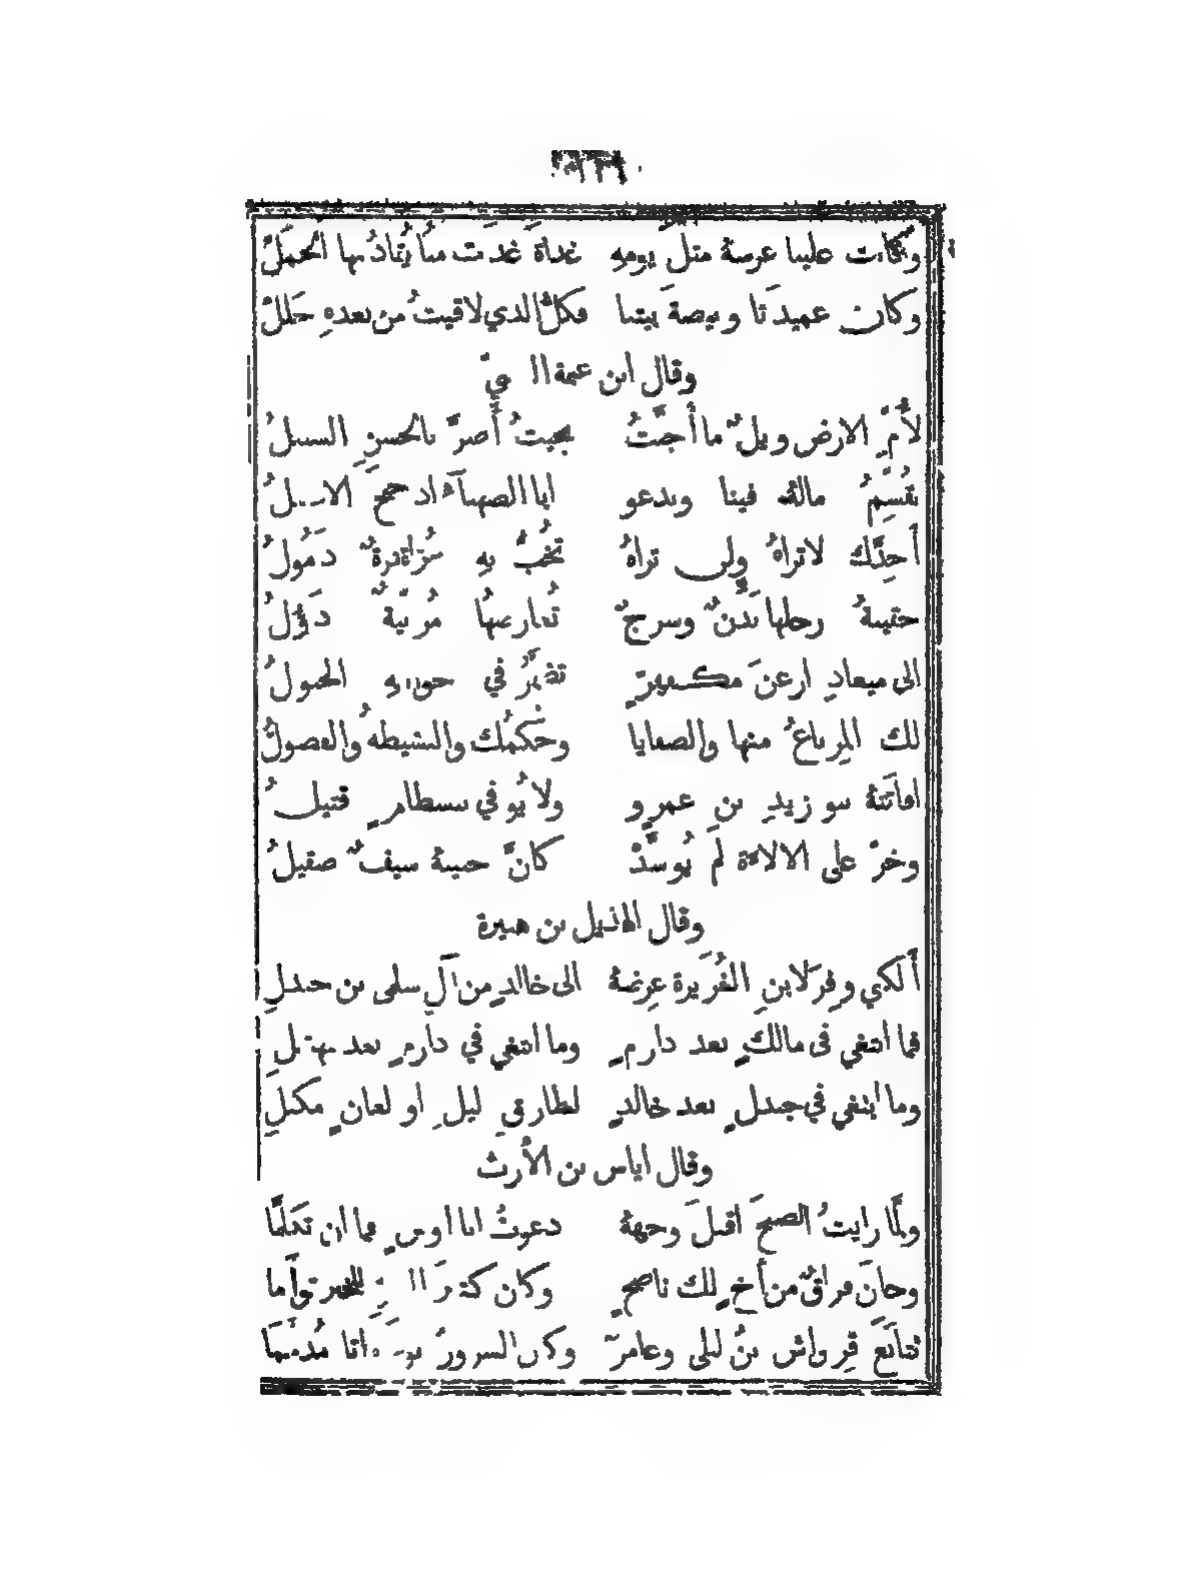 وكانت علينا عرسهُ مثلَ يومِهِ غداةَ غدَت منا يُقادُ بها الجَمَلُ
وكان عميدَنا وبيضةَ بيتنا فكلُّ الذي لاقيتُ من بعدهِ جَلَلْ
وقال ابن عنمة
لأُمِّ الارض ويلٌ ما أَجَنَّتْ بحيثُ أَضرَّ بالحسنِ السبيلُ
نقسِّمُ مالهُ فينا وندعو ابا الصهباءِ اذ جنح الاصيلُ
أَجِدَّك لا تراهُ ولن تراهُ تخُبُّ بهِ عُذافرةٌ ذَمُولُ
حقيبةُ رحلها بَدَنٌ وسرجٌ تُعارضها مُرَبّبةٌ دَؤُلُ
الى ميعادِ ارعنَ مكفهرّ تضمّرُ في جوانبهِ الخيولُ
لك المِرباعُ منها والصفايا وحُكمُك والنشيطةُ والفضولُ
افاتَتهُ بنو زيدِ بن عمرٍو ولا يُوفي ببسطامٍ قتيلُ
وخرّ على الالاءَة لَم يُوسَّدْ كانَّ جبينهُ سيفٌ صقيلُ
وقال الهذيل بن هبيرة
أَلكني وفِرْ لابنِ الغُرَيرة عِرضهُ الى خالدٍ من آلِ سلمى بن جندلِ
فما ابتغي في مالكٍ بعد دارمٍ وما ابتغي في دارمٍ بعد نهشلِ
وما ابتغي في جندلٍ بعد خالدٍ لطارقِ ليلٍ او لعانٍ مكبلِ
وقال اياس بن الأَرتّ
ولمَّا رايتُ الصبحَ اقبلَ وجههُ دعوتُ ابا أوسٍ فما ان تكلَّما
وحانَ فراقٌ من أخٍ لك ناصحٍ وكان كثيرَ للخير توأَما
تتابَعَ قِرواش بنُ ليلى وعامرٌ وكان السرورُ ماتا مُدَمَّما